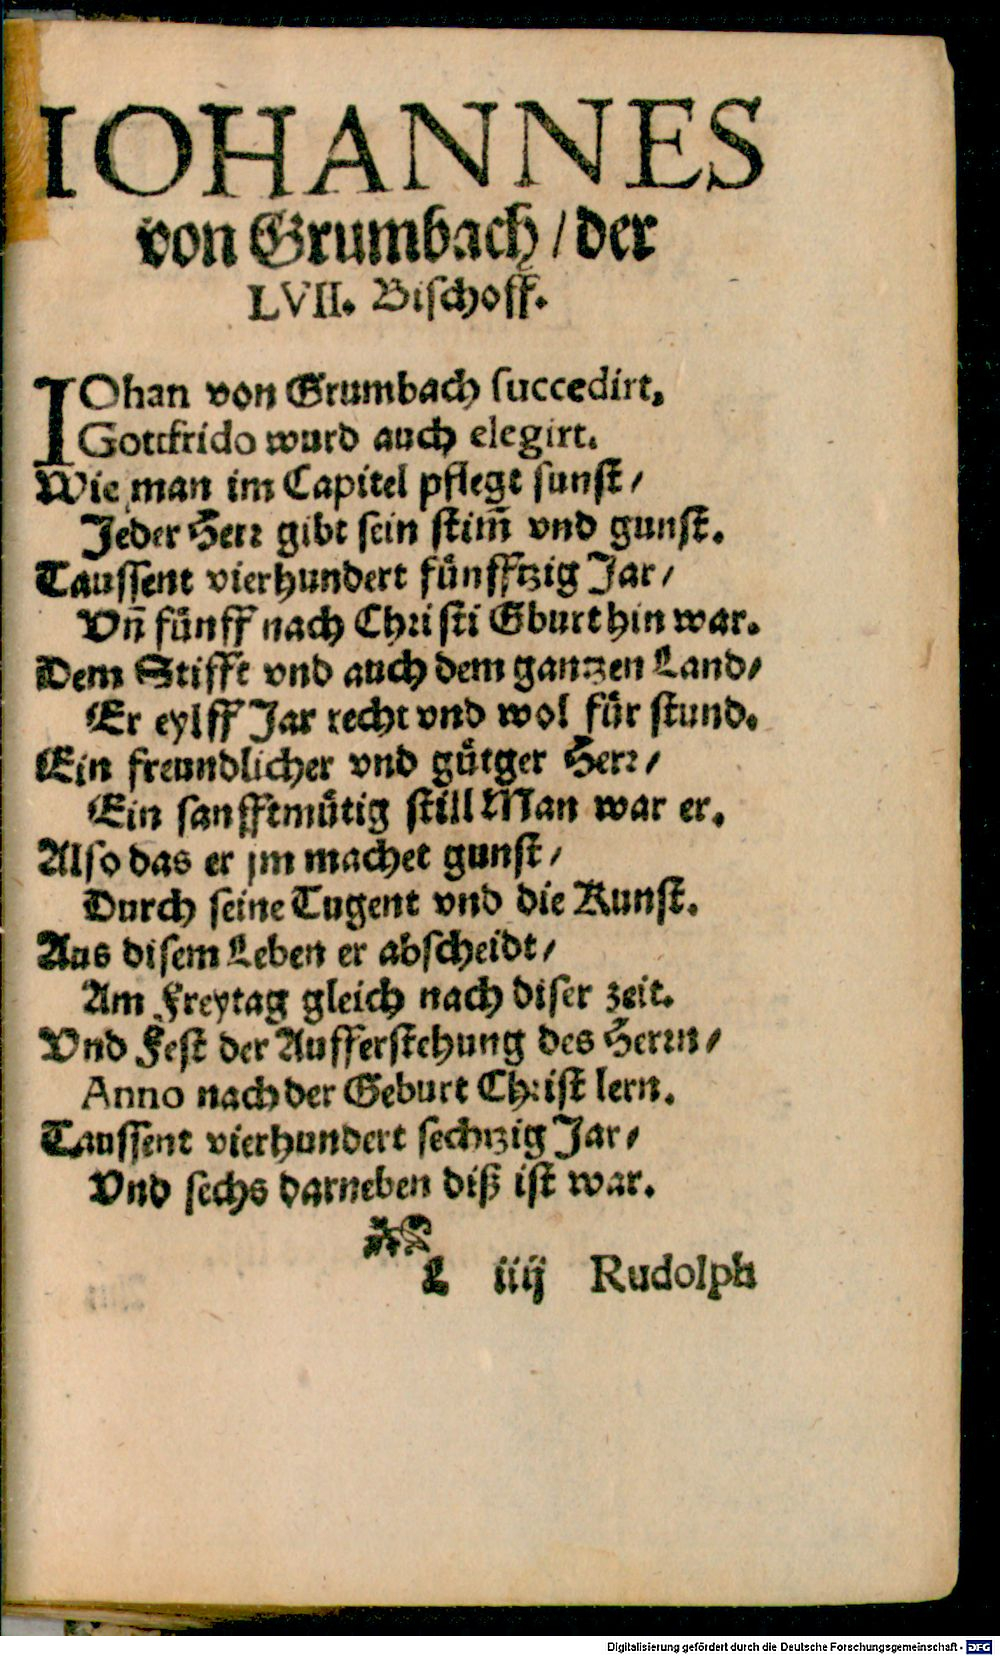 IOHANNES
von Grumbach / der
LVII. Bischoff.
IOhan von Grumbach succedirt,
Gottfrido wurd auch elegirt.
Wie man im Capitel pflegt sunst /
Jeder Herr gibt sein stim̃ vnd gunst.
Taussent vierhundert fünfftzig Jar /
Vn̄ fünff nach Christi Gburt hin war.
Dem Stifft vnd auch dem gantzen Land /
Er eylff Jar recht vnd wol für stund.
Ein freundlicher vnd gütger Herr /
Ein sanfftmütig still Man war er.
Also das er jm machet gunst /
Durch seine Tugent vnd die Kunst.
Aus disem Leben er abscheidt /
Am Freytag gleich nach diser zeit.
Vnd Fest der Aufferstehung des Herrn /
Anno nach der Geburt Christ lern.
Taussent vierhundert sechtzig Jar /
Vnd sechs darneben diß ist war.
L iiij Rudolph
Digitalisierung gefördert durch die Deutsche Forschungsgemeinschaft - DFG